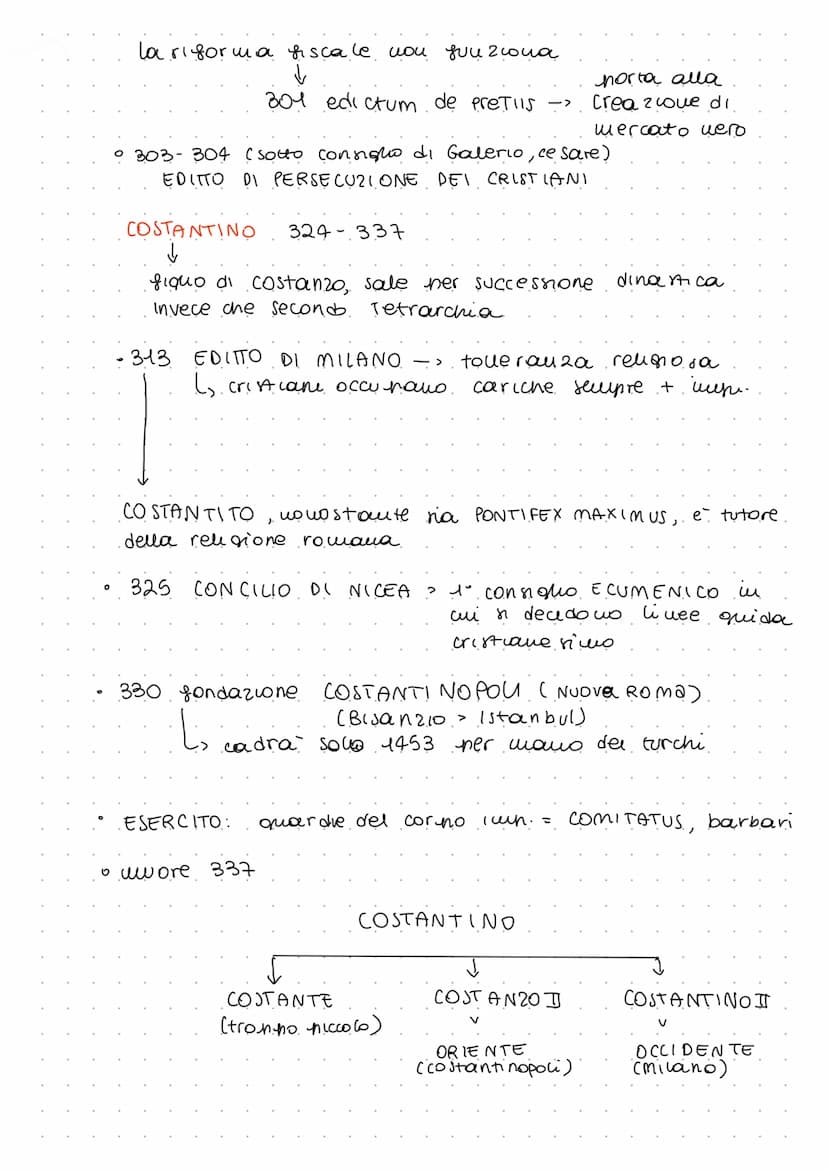 la riforma fiscale non funziona
↓
301 edictum de pretiis -> porta alla
creazione di
mercato nero
° 303-304 (sotto consiglio di Galerio, cesare)
EDITTO DI PERSECUZIONE DEI CRISTIANI
COSTANTINO 324-337
↓
figlio di costanzo, sale per successione dinastica
invece che secondo Tetrarchia
• 313 EDITTO DI MILANO -> tolleranza religiosa
↳ cristiani occupano cariche sempre + imp.
COSTANTITO, nonostante sia PONTIFEX MAXIMUS, e- tutore
della religione romana
• 325 CONCILIO DI NICEA > 1° consiglio ECUMENICO in
cui si decidono linee guida
cristianesimo
• 330 fondazione COSTANTINOPOLI (NUOVA ROMA)
(Bisanzio > Istanbul)
↳ cadra- solo 1453 per mano dei turchi
• ESERCITO: guardie del corpo imp. = COMITATUS, barbari
° muore 337
COSTANTINO
COSTANTE COSTANZO II COSTANTINO II
(troppo piccolo) v v
ORIENTE OCCIDENTE
(costantinopoli) (milano)